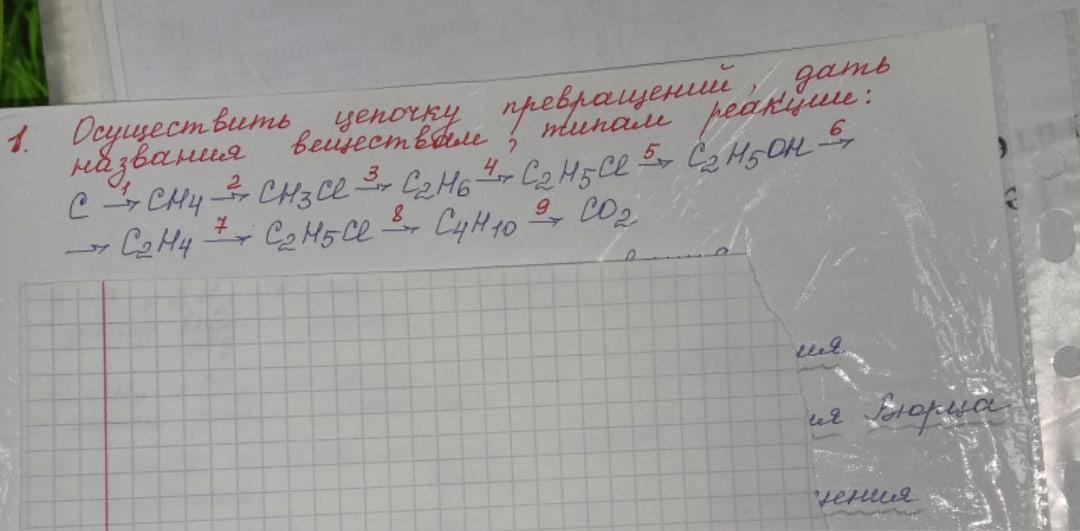 1. Осуществить цепочку превращений, дать
названия веществам, типам реакции:
C →1 CH4 →2 CH3Cl →3 C2H6 →4 C2H5Cl →5 C2H5OH →6
→ C2H4 →7 C2H5Cl →8 C4H10 →9 CO2
Вюрца